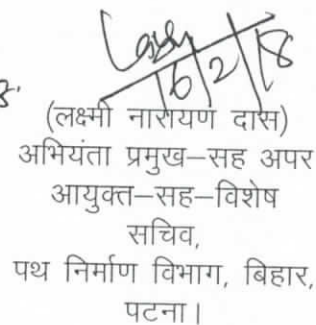 16/2/18
(लक्ष्मी नारायण दास)
अभियंता प्रमुख–सह अपर
आयुक्त–सह–विशेष
सचिव,
पथ निर्माण विभाग, बिहार,
पटना।